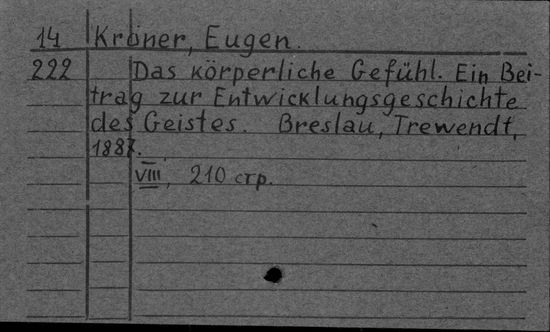 14 Kröner, Eugen.
222 Das körperliche Gefühl. Ein Bei-
trag zur Entwicklungsgeschichte
des Geistes. Breslau, Trewendt,
1887.
VIII, 210 стр.